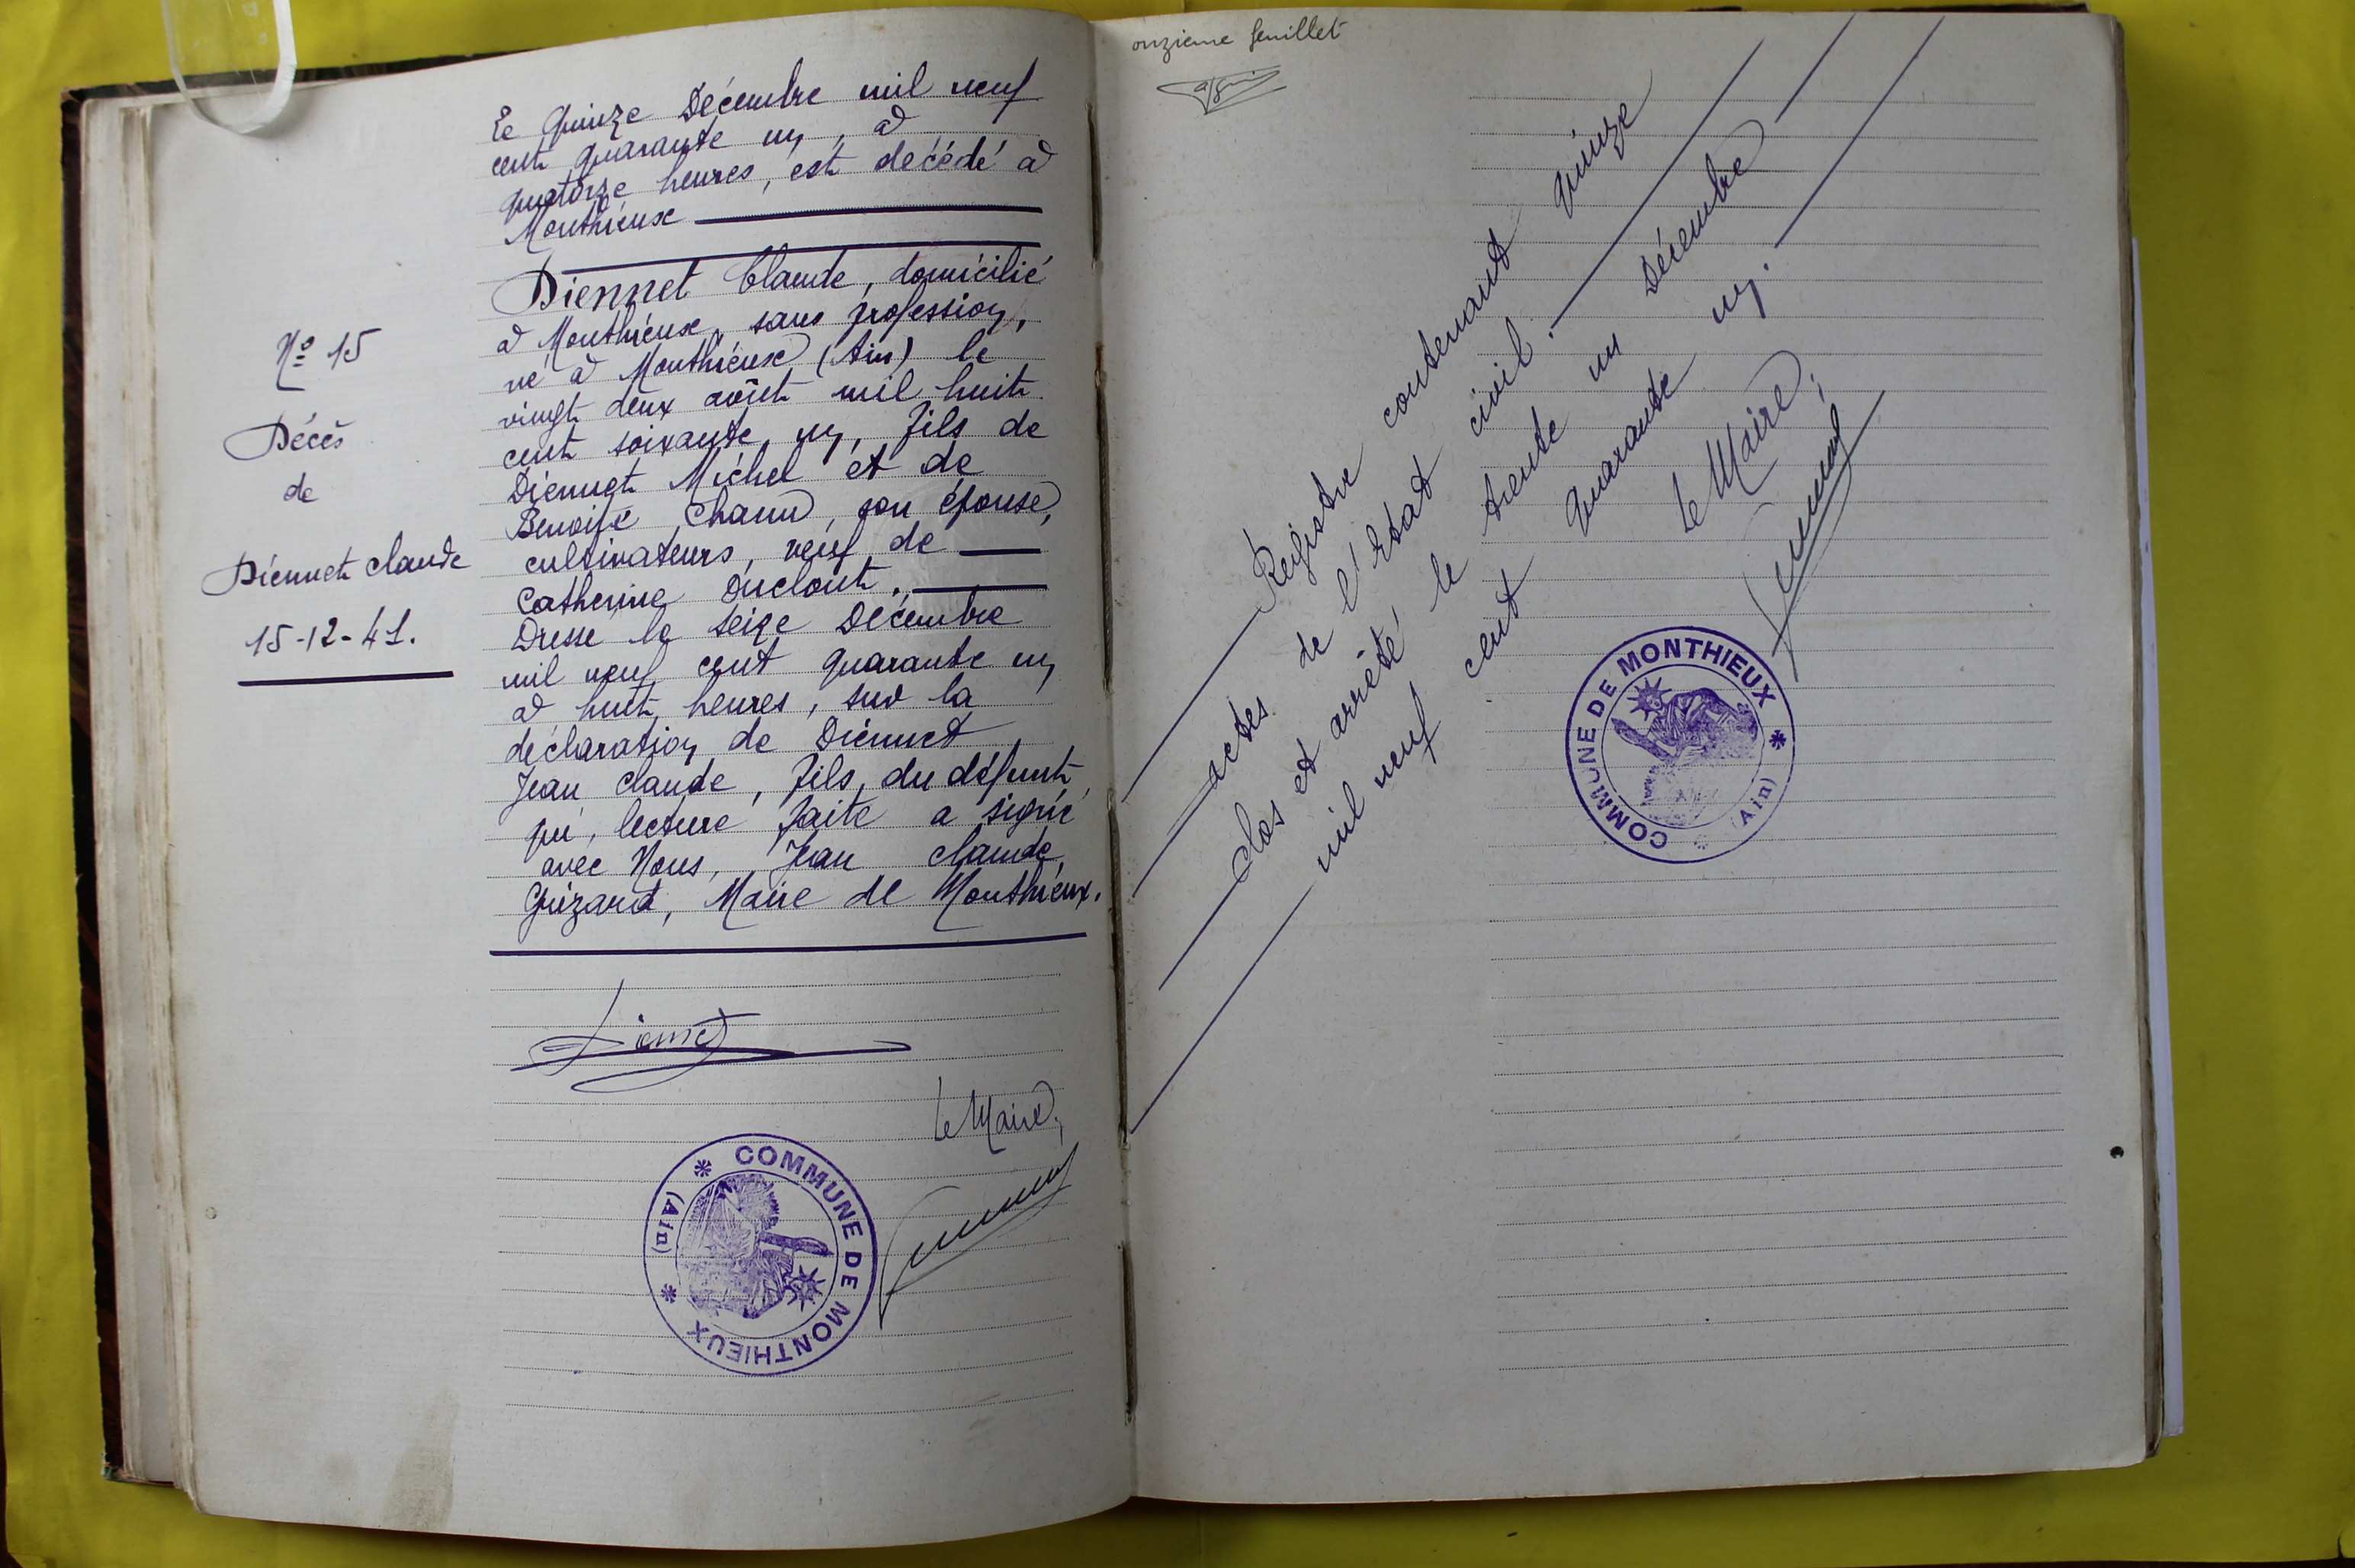 N° 15
Décès
de
Diennet Claude
15-12-41.
Le quinze Décembre mil neuf
cent quarante un, à
quatorze heures, est décédé à
Monthieux
Diennet Claude, domicilié
à Monthieux, sans profession,
né à Monthieux (Ain) le
vingt deux août mil huit
cent soixante un, fils de
Diennet Michel et de
Benoite Chanu, son épouse,
cultivateurs, veuf de
Catherine Duclout.
Dressé le seize Décembre
mil neuf cent quarante un
à huit heures, sur la
déclaration de Diennet
Jean Claude, fils du défunt
qui, lecture faite a signé
avec Nous, Jean Claude
Grizard, Maire de Monthieux.
Diennet
Le Maire,
COMMUNE DE MONTHIEUX
(Ain)
onzième feuillet
Registre contenant quinze
actes de l'Etat civil.
clos et arrêté le trente un Décembre
mil neuf cent quarante un.
Le Maire,
COMMUNE DE MONTHIEUX
(Ain)